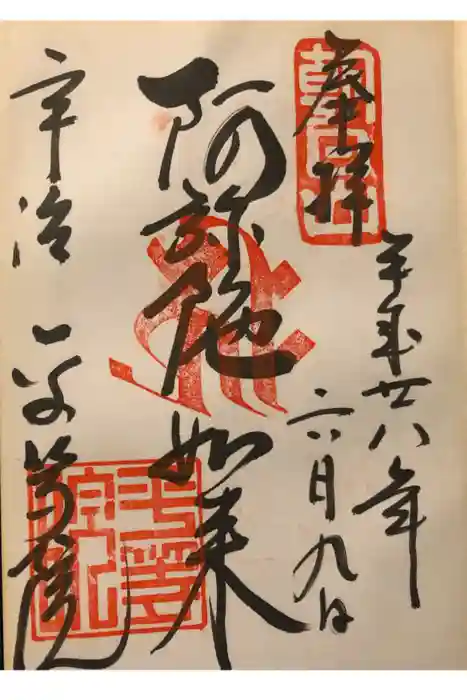 奉拝
平成廿八年
六月九日
阿弥陀如来
宇治 平等院
朝日山